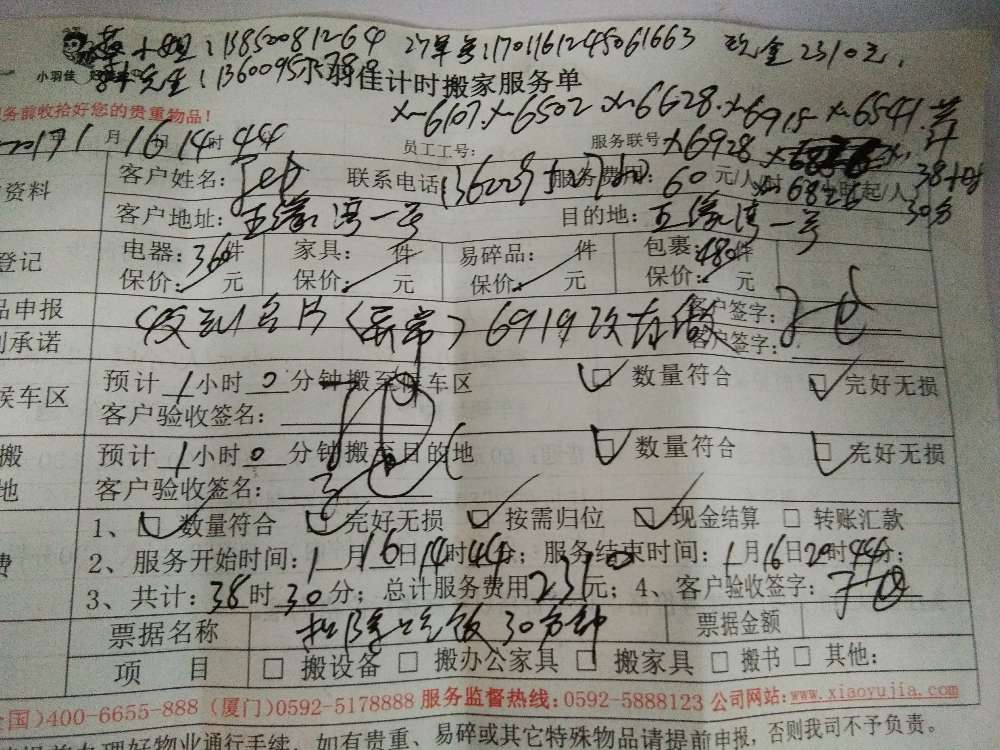 小姐:13850081264 订单号:1701161245061663 现金2310元.
小羽佳
先生: 小羽佳计时搬家服务单
务前收拾好您的贵重物品!
X-6107. X-6502 X-6628. X-6915 X-6541. 共计
171月16日14时44 员工工号: 服务联号 X6928 38小时
资料 客户姓名: 联系电话 服务费用:60元/人/时 起/人 30分
客户地址:五缘湾一号 目的地:五缘湾一号
登记 电器:36件 家具: 件 易碎品: 件 包裹:480件
保价: 元 保价: 元 保价: 元 保价: 元
品申报 收到名片(异常)6919次 客户签字:
承诺 客户签字:
候车区 预计1小时0分钟搬至候车区 数量符合 完好无损
客户验收签名:
搬 预计1小时0分钟搬至目的地 数量符合 完好无损
地 客户验收签名:
1、 数量符合 完好无损 按需归位 现金结算 转账汇款
费 2、服务开始时间:1月16日14时44分; 服务结束时间:1月16日20时44分;
3、共计:38时30分; 总计服务费用2310元; 4、客户验收签字:
票据名称 扣除吃饭30分钟 票据金额
项 目 搬设备 搬办公家具 搬家具 搬书 其他:
全国)400-6655-888 (厦门)0592-5178888 服务监督热线:0592-5888123 公司网站:www.xiaoyujia.com
前办理好物业通行手续,如有贵重、易碎或其它特殊物品请提前申报,否则我司不予负责。